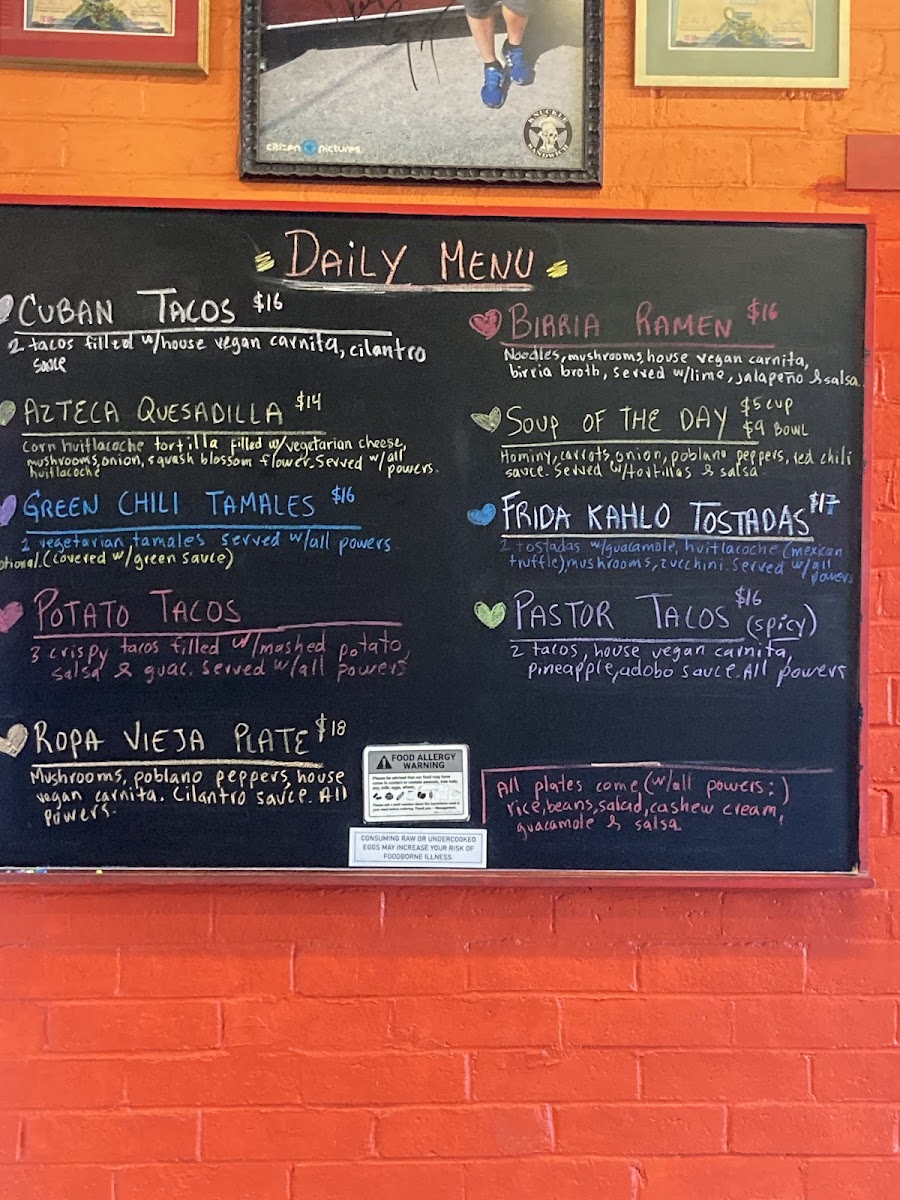 citizen pictures
KNUCKLE SANDWICH
DAILY MENU
CUBAN TACOS $16
2 tacos filled w/house vegan carnita, cilantro
sauce
AZTECA QUESADILLA $14
corn huitlacoche tortilla filled w/vegetarian cheese,
mushrooms, onion, squash blossom flower. Served w/all
huitlacoche powers.
GREEN CHILI TAMALES $16
2 vegetarian tamales served w/all powers
ptional. (covered w/green sauce)
POTATO TACOS
3 crispy tacos filled w/mashed potato,
salsa & guac. Served w/all powers
ROPA VIEJA PLATE $18
Mushrooms, poblano peppers, house
vegan carnita. Cilantro sauce. All
powers.
BIRRIA RAMEN $16
Noodles, mushrooms, house vegan carnita,
birria broth, served w/lime, jalapeño & salsa.
SOUP OF THE DAY $5 CUP
$9 BOWL
Hominy, carrots, onion, poblano peppers, red chili
sauce. Served w/tortillas & salsa
FRIDA KAHLO TOSTADAS $17
2 tostadas w/guacamole, huitlacoche (mexican
truffle), mushrooms, zucchini. Served w/all
powers
PASTOR TACOS $16
(spicy)
2 tacos, house vegan carnita,
pineapple, adobo sauce. All powers
All plates come (w/all powers:)
rice, beans, salad, cashew cream,
guacamole & salsa
FOOD ALLERGY
WARNING
Please be advised that our food may have
come in contact or contain peanuts, tree nuts,
soy, milk, eggs, wheat,
CONSUMING RAW OR UNDERCOOKED
EGGS MAY INCREASE YOUR RISK OF
FOODBORNE ILLNESS.